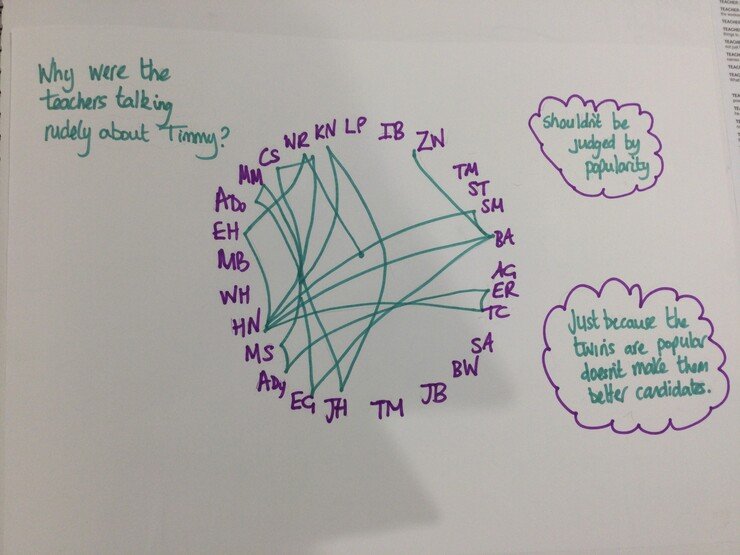 Why were the
teachers talking
rudely about Timmy?
CS
NR
KN
LP
IB
ZN
TM
ST
SM
BA
AG
ER
TC
SA
BW
JB
TM
JH
EG
ADy
MS
HN
WH
MB
EH
ADo
MM
shouldn't be
judged by
popularity
Just because the
twins are popular
doesn't make them
better candidates.
TEACHER
TEACHER